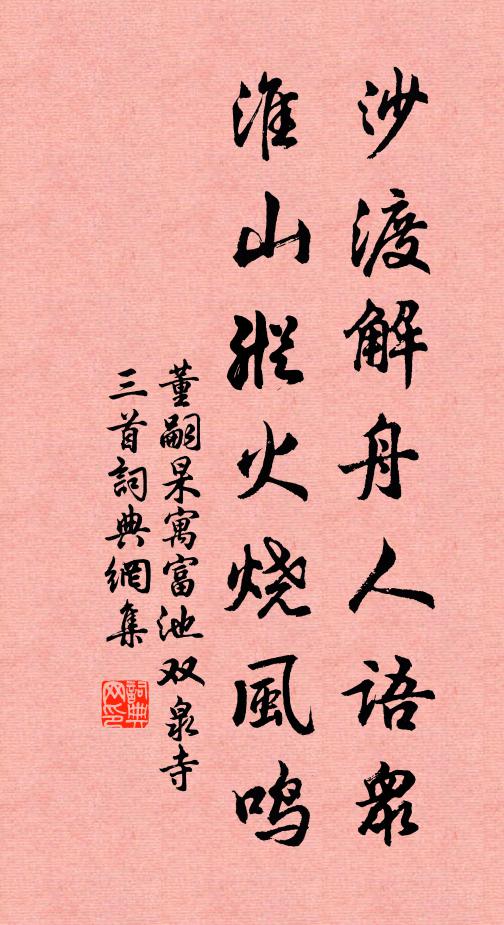 沙渡解舟人語衆
淮山縱火烧風鸣
董嗣杲寓富池双泉寺
三首詞典網集
詞典网印